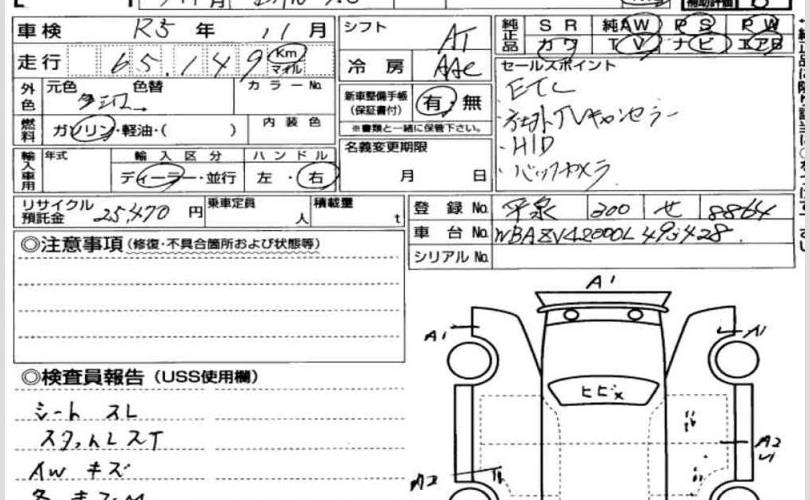 車検 R5年 11月
シフト AT
純正品 SR 純正AW PS PW
カワ TV ナビ エアB
走行 65,149 Km マイル
冷房 AAC
セールスポイント
外色 元色 色替 カラーNo.
新車整備手帳 (保証書付) 有・無
・ETC
※書類と一緒に保管下さい。
・TVキャンセラー
燃料 ガソリン・軽油・( ) 内装色
・HID
名義変更期限 月 日
・バックカメラ
輸入車用 年式 輸入区分 ハンドル
ディーラー・並行 左・右
リサイクル預託金 25,470円 乗車定員 人 積載量 t
登録No. 平泉 300 せ 8864
◎注意事項 (修復・不具合箇所および状態等)
車台No.
シリアルNo.
A1
A1
A1
◎検査員報告 (USS使用欄)
ヒビ×
シート スレ
AW キズ
A2
A2